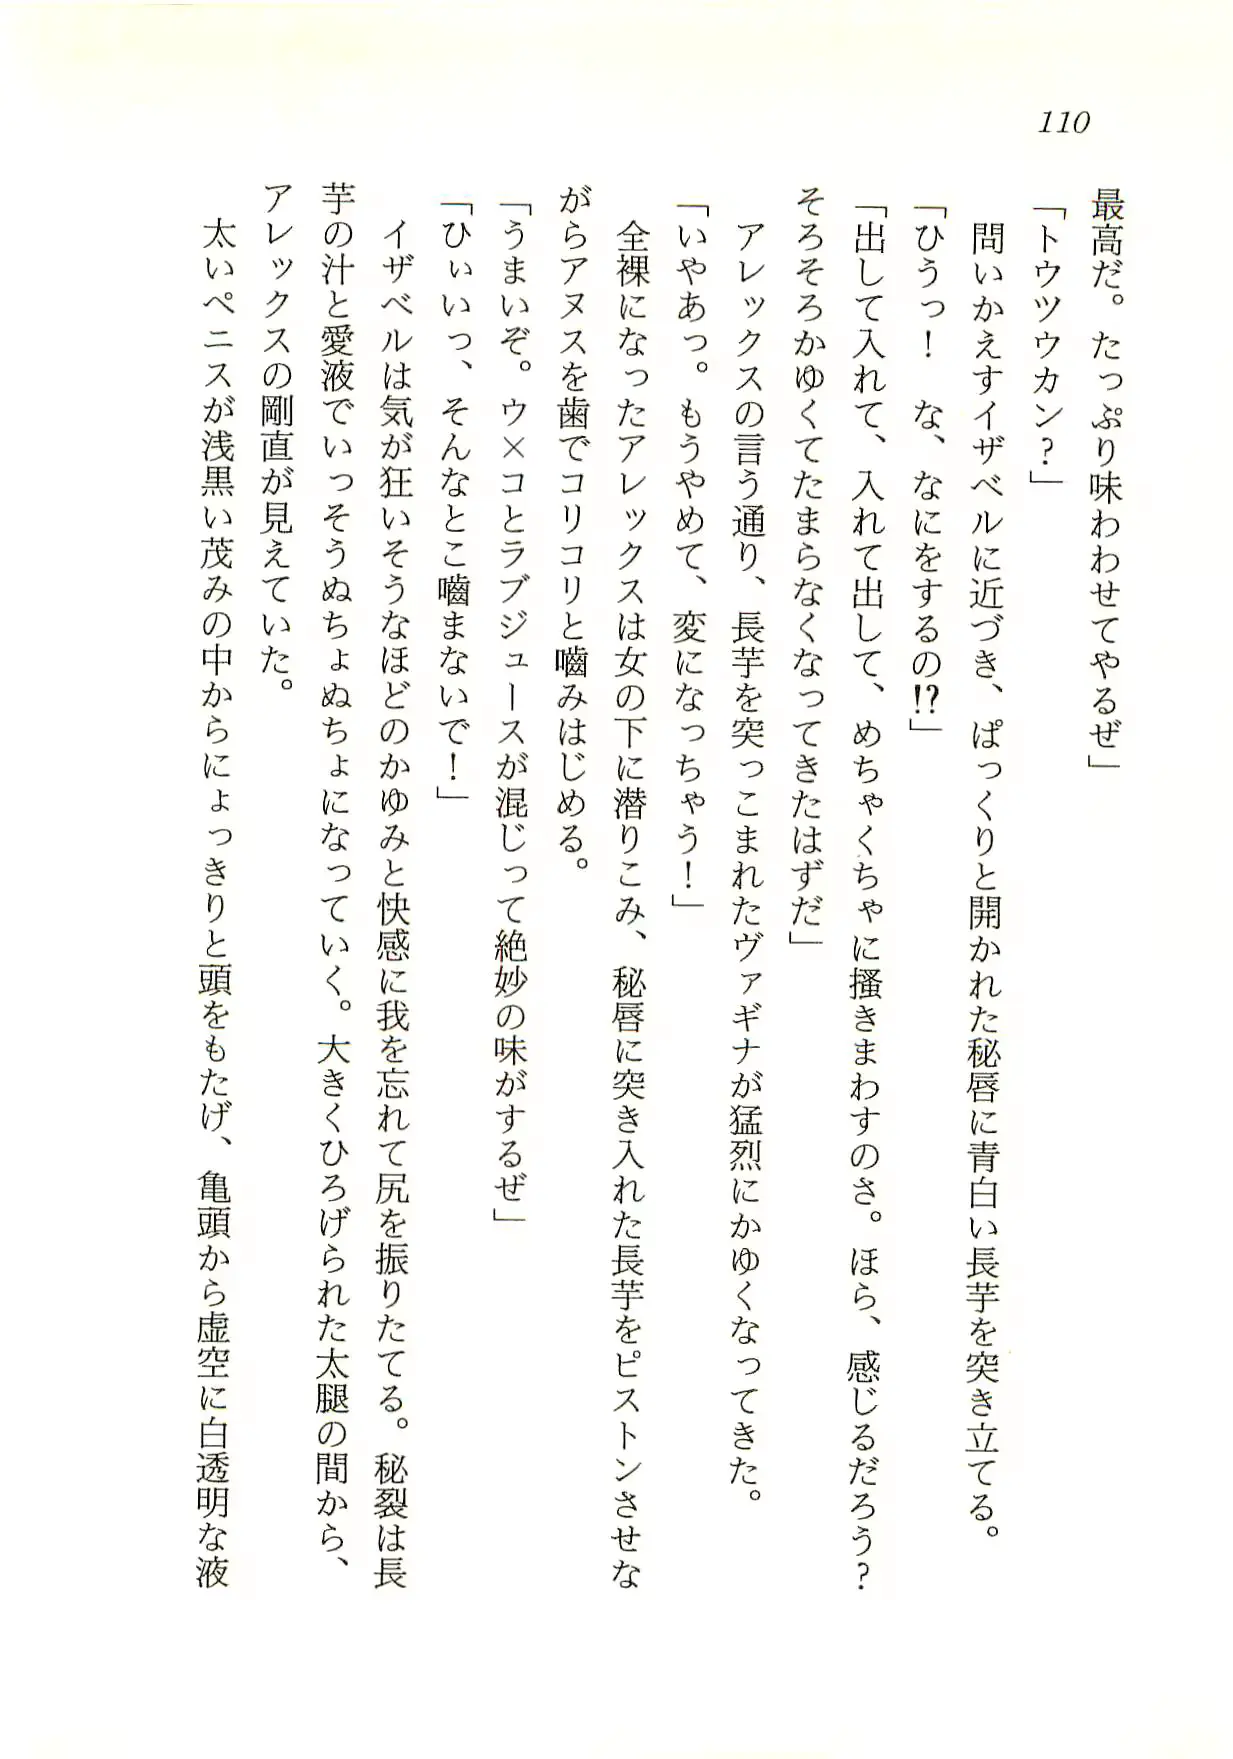 110
最高だ。たっぷり味わわせてやるぜ」
「トウツウカン？」
　問いかえすイザベルに近づき、ぱっくりと開かれた秘唇に青白い長芋を突き立てる。
「ひうっ！　な、なにをするの!?」
「出して入れて、入れて出して、めちゃくちゃに掻きまわすのさ。ほら、感じるだろう？
そろそろかゆくてたまらなくなってきたはずだ」
　アレックスの言う通り、長芋を突っこまれたヴァギナが猛烈にかゆくなってきた。
「いやあっ。もうやめて、変になっちゃう！」
　全裸になったアレックスは女の下に潜りこみ、秘唇に突き入れた長芋をピストンさせな
がらアヌスを歯でコリコリと噛みはじめる。
「うまいぞ。ウ×コとラブジュースが混じって絶妙の味がするぜ」
「ひぃいっ、そんなとこ噛まないで！」
　イザベルは気が狂いそうなほどのかゆみと快感に我を忘れて尻を振りたてる。秘裂は長
芋の汁と愛液でいっそうぬちょぬちょになっていく。大きくひろげられた太腿の間から、
アレックスの剛直が見えていた。
　太いペニスが浅黒い茂みの中からにょっきりと頭をもたげ、亀頭から虚空に白透明な液